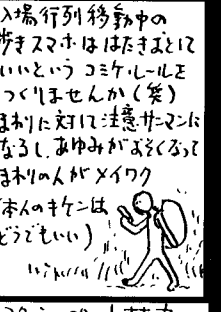 入場行列移動中の
歩きスマホははたきおとして
いいという コミケルールを
つくりませんか(笑)
まわりに対して注意サンマンに
なるし、あゆみがおそくなって
まわりの人がメイワク
(本人のキケンは
どうでもいい)